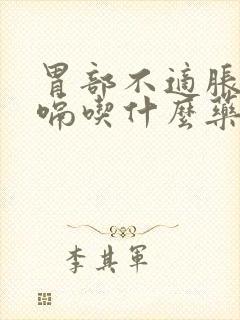 胃部不適脹
嗝喫什麼藥
李其軍